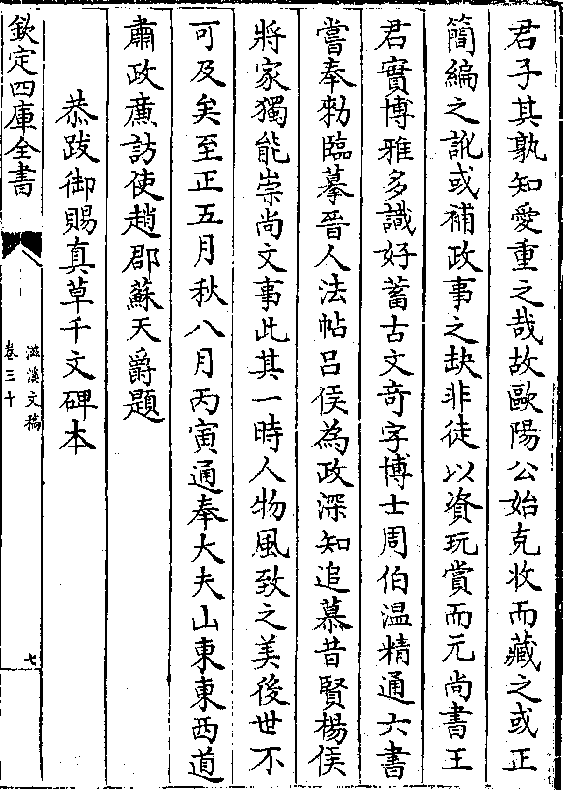 君子其孰知愛重之哉故歐陽公始克收而藏之或正
簡編之訛或補政事之缺非徒以資玩賞而元尚書王
君實博雅多識好蓄古文奇字博士周伯温精通六書
嘗奉勅臨摹晉人法帖吕侯為政深知追慕昔賢楊侯
將家獨能崇尚文事此其一時人物風致之美後世不
可及矣至正五月秋八月丙寅通奉大夫山東東西道
肅政廉訪使趙郡蘇天爵題
恭跋御賜真草千文碑本
欽定四庫全書
滋溪文稿
卷三十
七